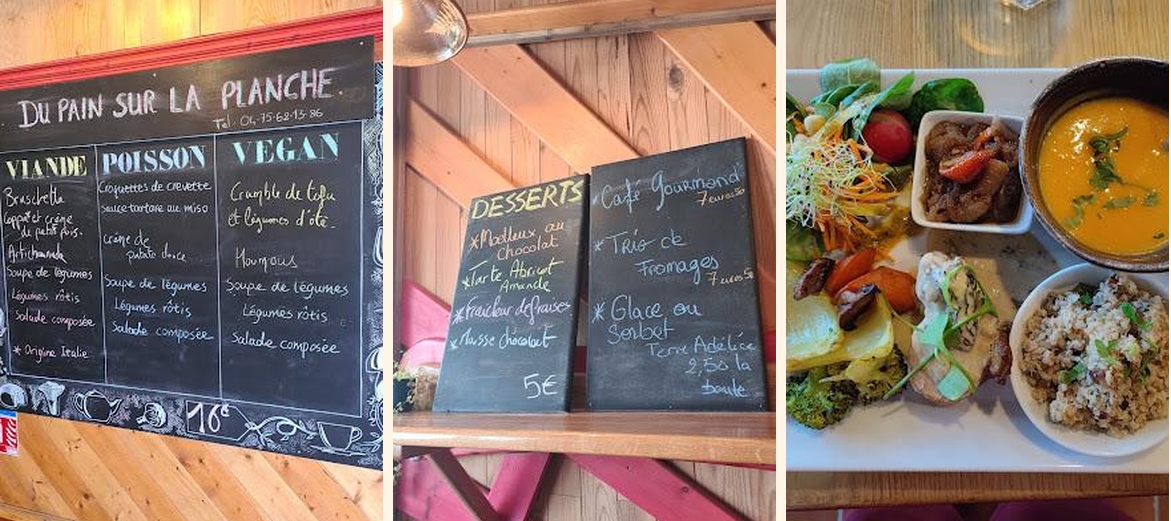 DU PAIN SUR LA PLANCHE
Tel 04-75-68-13-86
VIANDE
Bruschetta
Coppa et crème
de petit pois.
Artichaude
Soupe de légumes
Légumes rôtis
Salade composée
* Origine Italie
POISSON
Croquettes de crevette
Sauce tartare au miso
crème de
patate douce
Soupe de légumes
Légumes rôtis
Salade composée
VEGAN
Crumble de tofu
et légumes d'été.
Houmous
Soupe de légumes
Légumes rôtis
Salade composée
16€
DESSERTS
* Moelleux au
Chocolat
* Tarte Abricot
Amande
* Fraicheur de fraises
* Mousse chocolat
5€
* Café Gourmand
7euros50
* Trio de
Fromages
7euros50
* Glace ou
Sorbet
Terre Adélice
2,50 la
boule